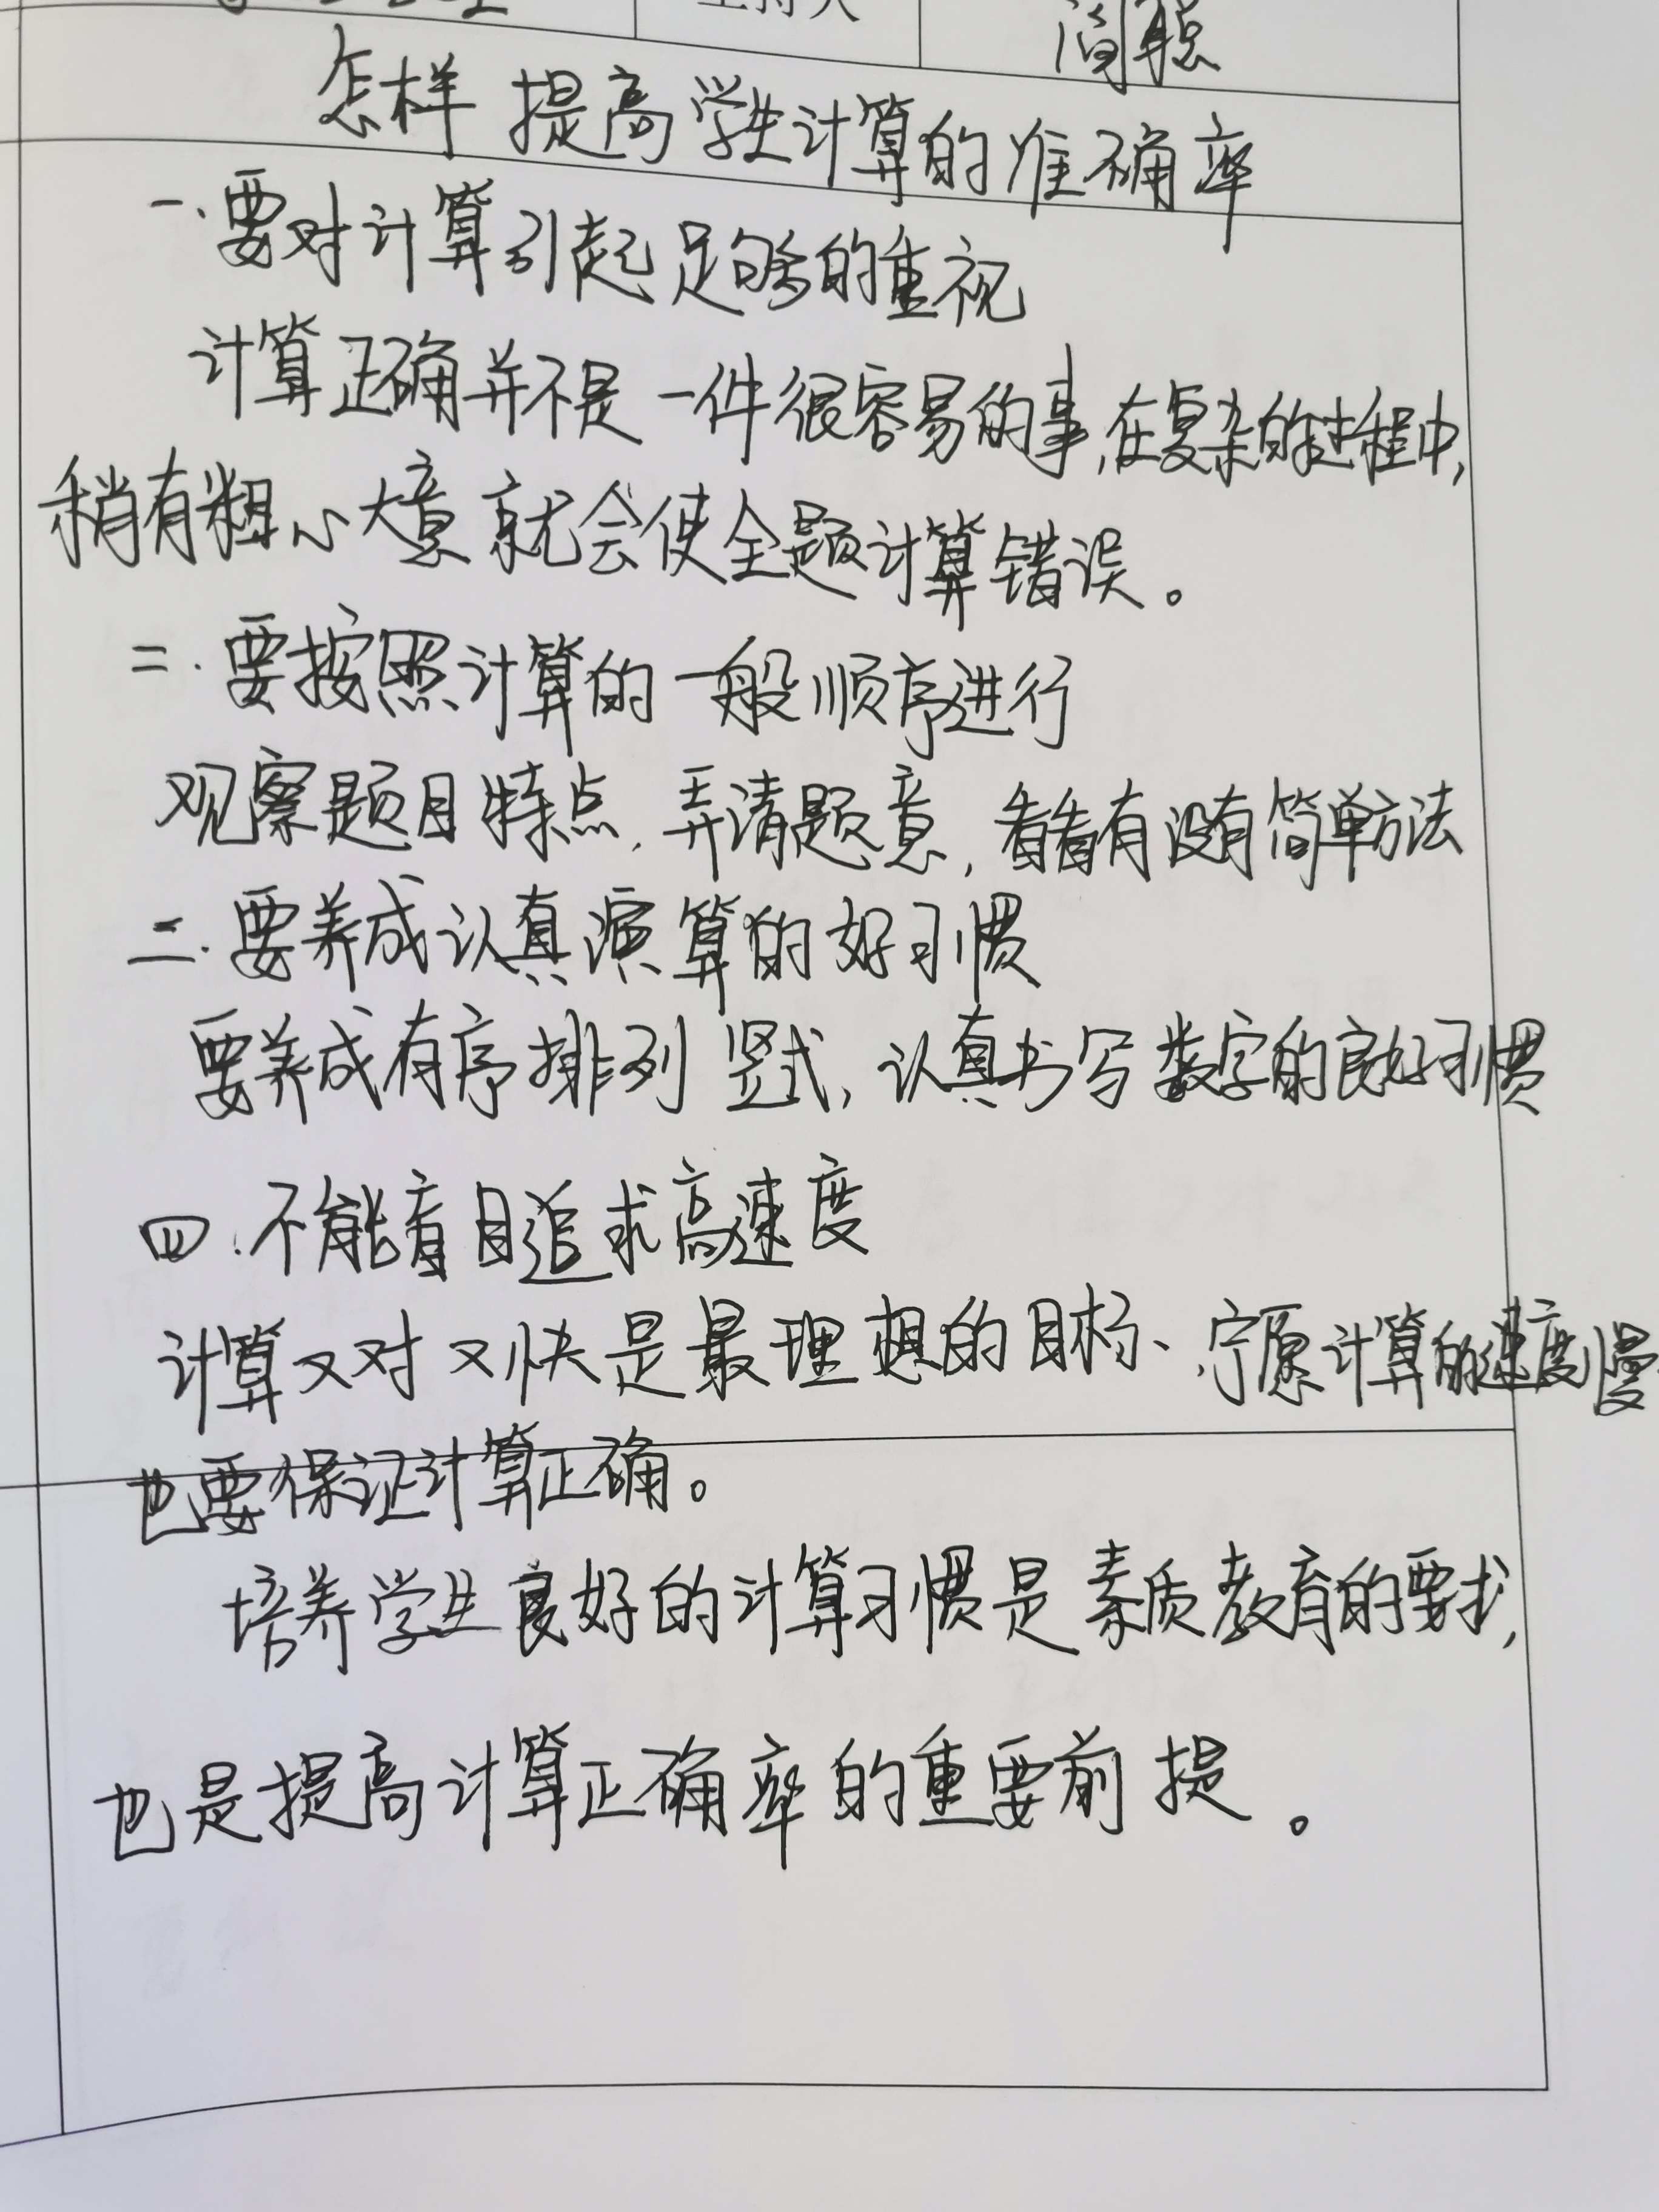 主持人
怎样提高学生计算的准确率
一.要对计算引起足够的重视
计算正确并不是一件很容易的事,在复杂的过程中,
稍有粗心大意就会使全题计算错误。
二.要按照计算的一般顺序进行
观察题目特点,弄清题意,看看有没有简单方法
二.要养成认真演算的好习惯
要养成有序排列竖式,认真书写数字的良好习惯
四.不能盲目追求高速度
计算又对又快是最理想的目标、宁愿计算的速度慢
也要保证计算正确。
培养学生良好的计算习惯是素质教育的要求,
也是提高计算正确率的重要前提。